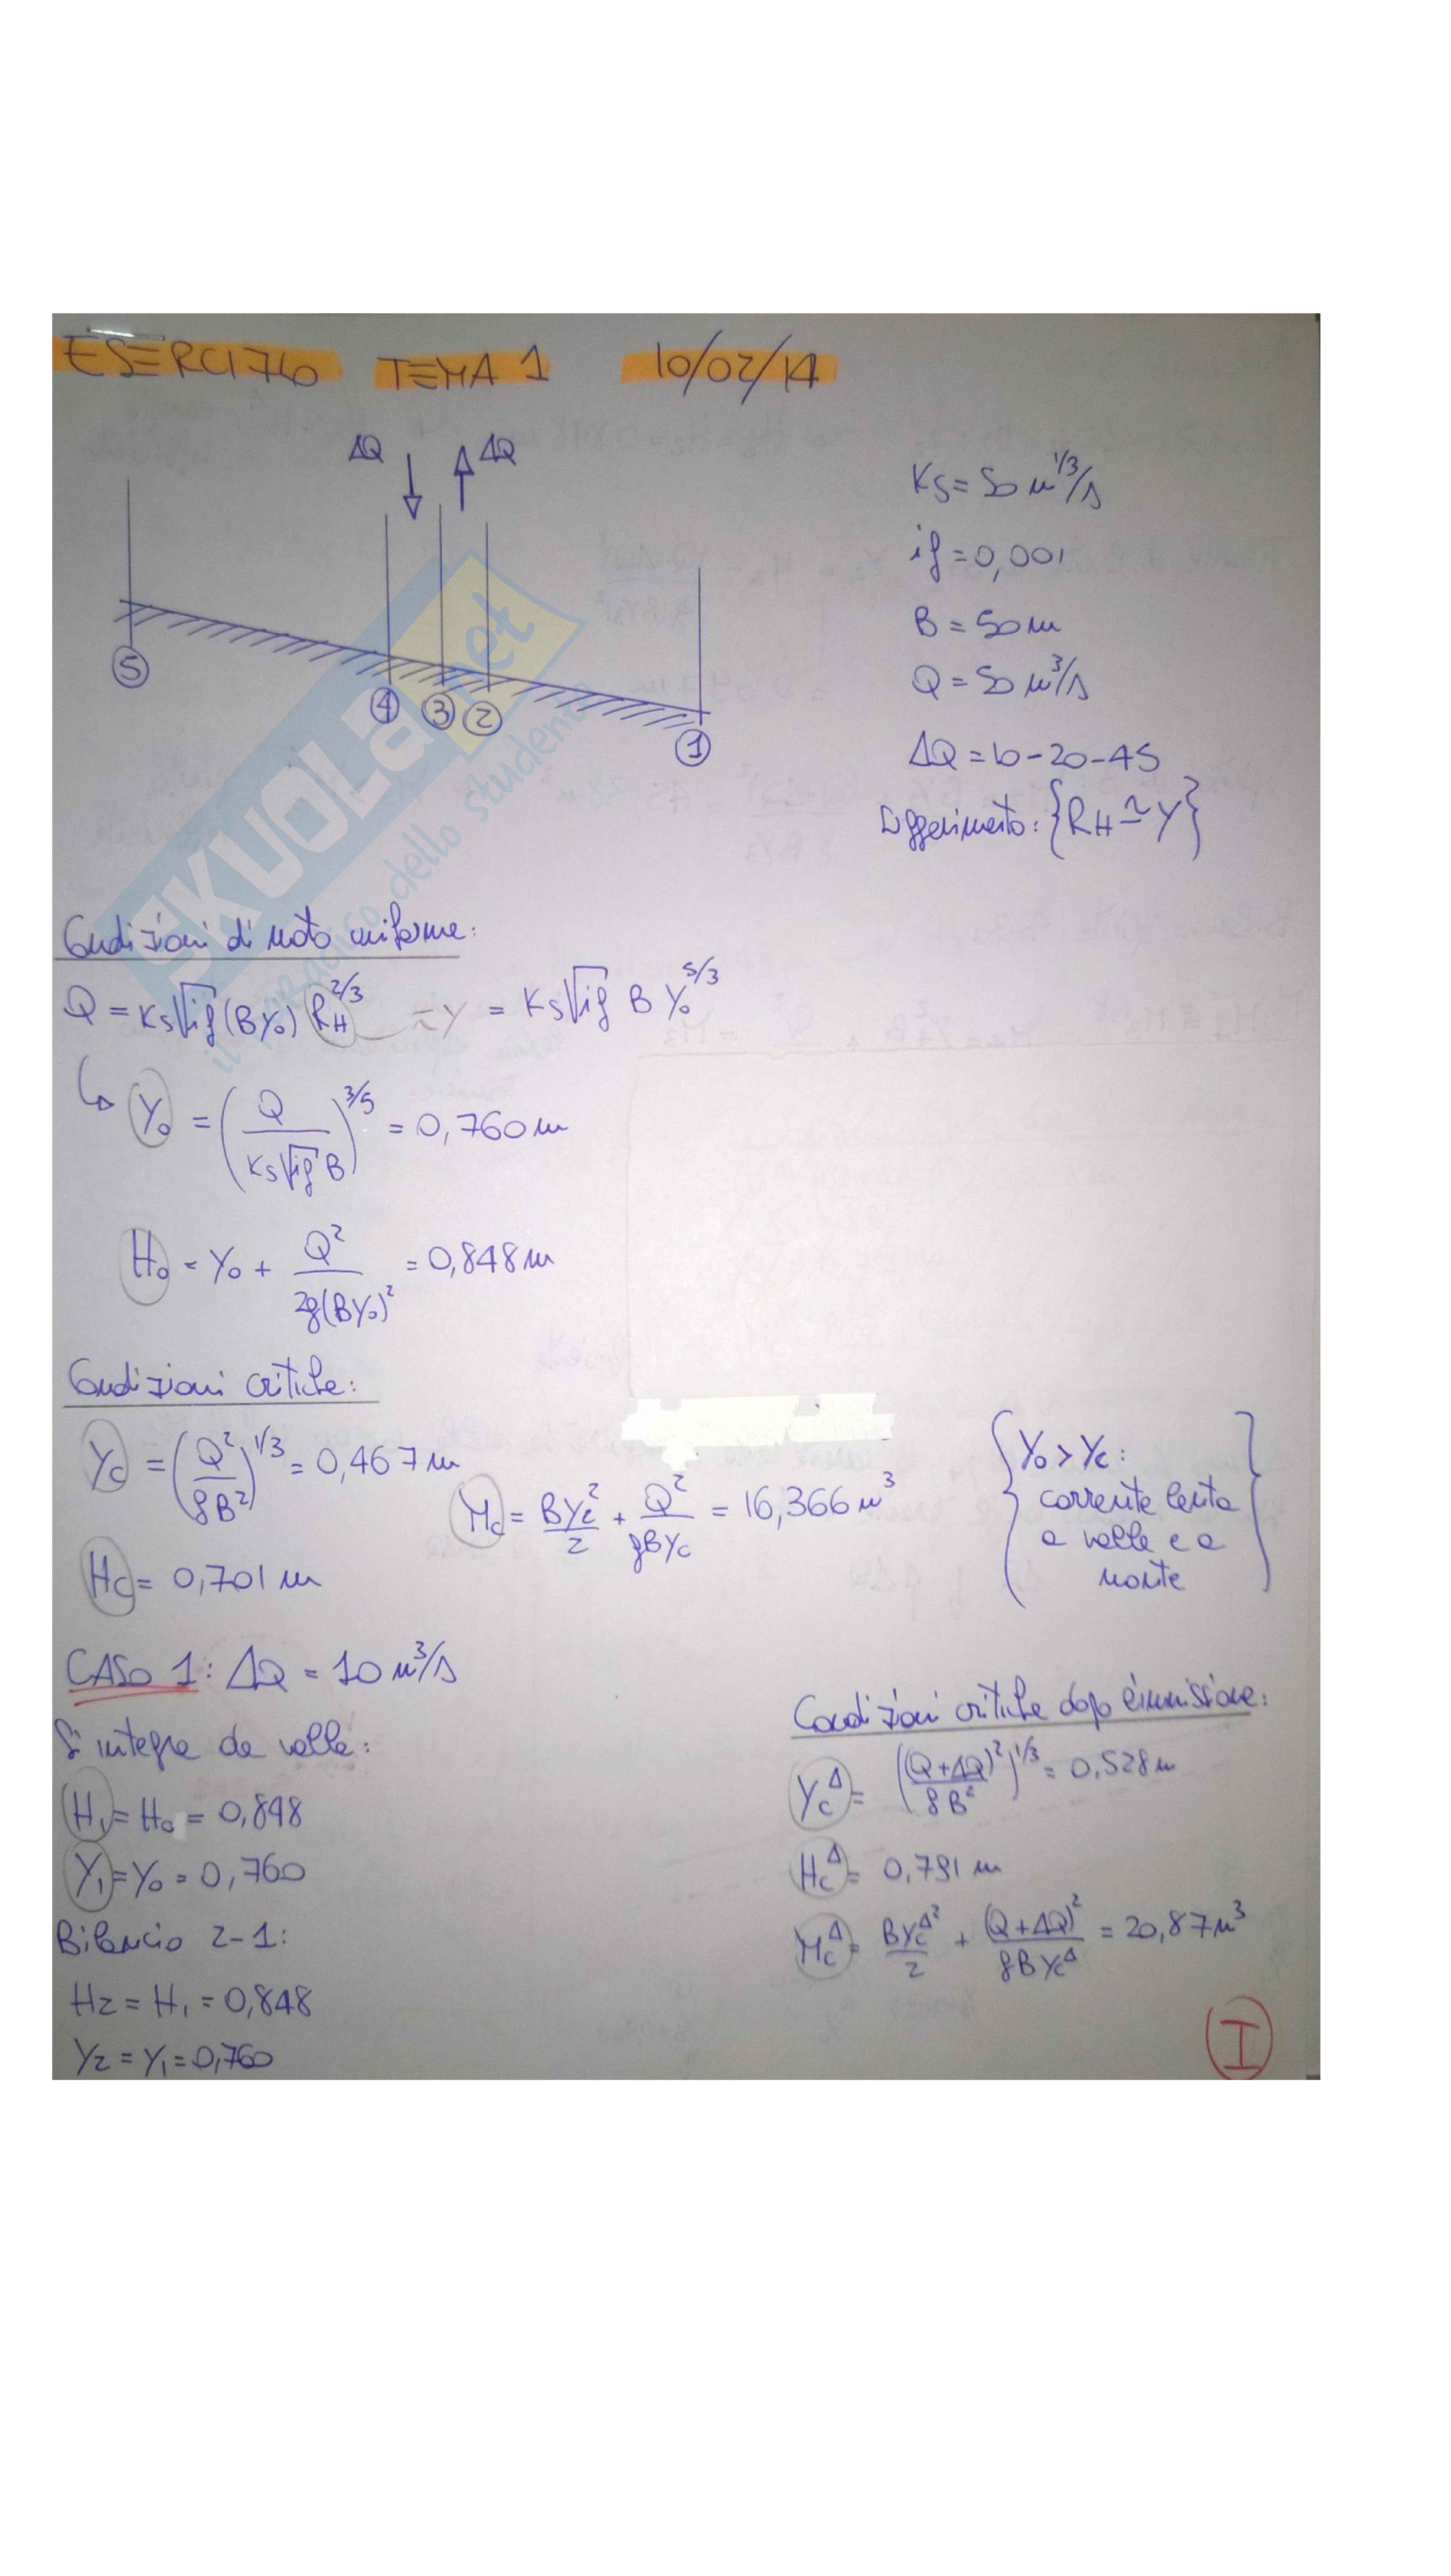 ESERCIZIO TEMA 1 10/02/14
ΔQ ΔQ
5 4 3 2 1
Ks = 50 m^1/3/s
if = 0,001
B = 50 m
Q = 50 m³/s
ΔQ = 10 - 20 - 45
Suggerimento: {RH ≃ Y}
SKUOLA.net
il paradiso dello studente
Condizioni di moto uniforme:
Q = Ks√if (BY₀) RH^2/3 ≃Y = Ks√if B Y₀^5/3
↳ Y₀ = (Q / Ks√if B)^3/5 = 0,760 m
H₀ = Y₀ + Q² / 2g(BY₀)² = 0,848 m
Condizioni critiche:
Yc = (Q² / gB²)^1/3 = 0,467 m
Mc = BYc²/2 + Q²/gBYc = 16,366 m³
{Y₀ > Yc:
corrente lenta
a valle e a
monte}
Hc = 0,701 m
CASO 1: ΔQ = 10 m³/s
Si integra da valle:
H₁ = H₀ = 0,848
Y₁ = Y₀ = 0,760
Bilancio 2-1:
H2 = H₁ = 0,848
Y2 = Y₁ = 0,760
Condizioni critiche dopo immissione:
Yc^Δ = ((Q+ΔQ)² / gB²)^1/3 = 0,528 m
Hc^Δ = 0,791 m
Mc^Δ = BYc^Δ²/2 + (Q+ΔQ)²/gBYc^Δ = 20,87 m³
I